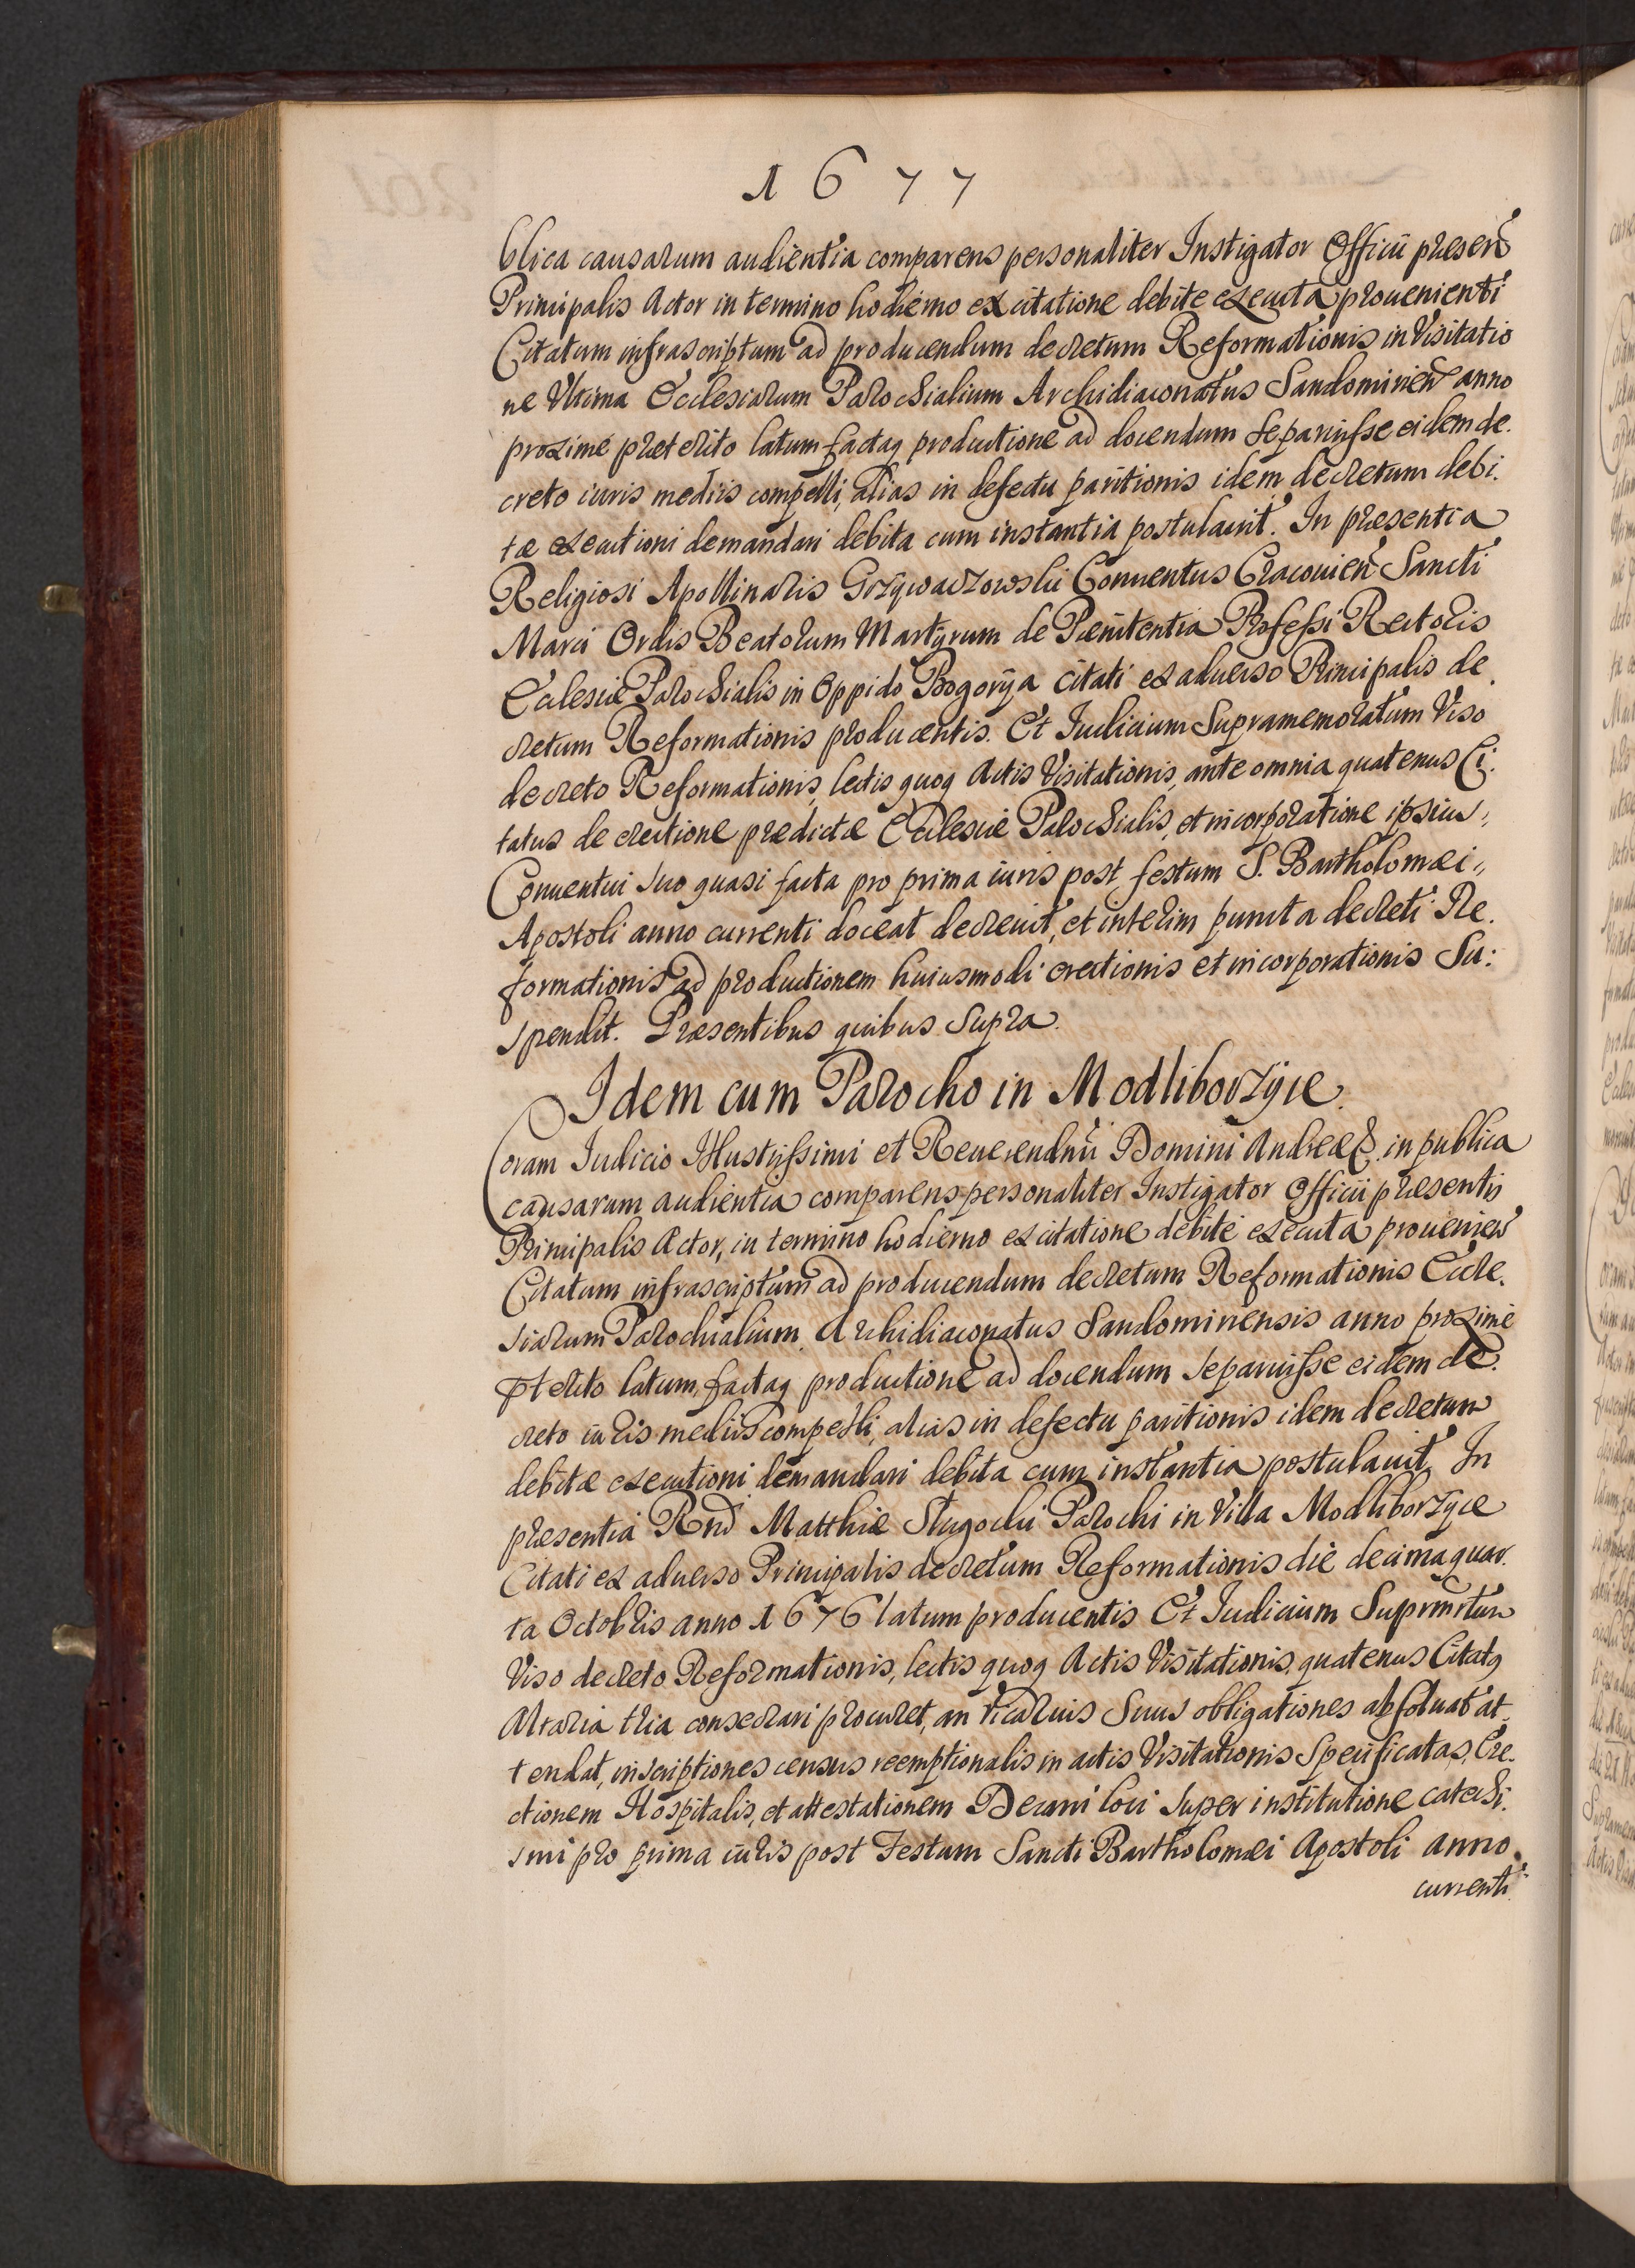 1677
blica causarum audientia comparens personaliter Instigator Officii presen̄
Principalis Actor in termino hodierno ex citatione debite executa prouenienti
Citatum infrascriptum ad producendum decretum Reformationis in Visitatio
ne Vltima Ecclesiarum Parochialium Archidiaconatus Sandomirien̄ anno
proxime præterito latum factaq productione ad docendum se paruisse eidem de.
creto iuris mediis compelli, alias in defectu paritionis idem decretum debi.
tæ executioni demandari debita cum instantia postulauit. In præsentia
Religiosi Apollinaris Grzywaczowski Conuentus Cracouien̄ Sancti
Marci Ordis Beatorum Martyrum de Pœnitentia Professi Rectoris
Ecclesiæ Parochialis in Oppido Bogoryia citati ex aduerso Principalis de.
cretum Reformationis producentis. Et Iudicium Supramemoratum Viso
decreto Reformationis, lectis quoq Actis Visitationis, ante omnia quatenus Ci.
tatus de erectione prædictæ Ecclesiæ Parochialis, et incorporatione ipsius,,
Conuentui suo quasi facta pro prima iuris post festum S. Bartholomæi,,
Apostoli anno currenti doceat decreuit, et interim puncta decreti Re.
formationis ad productionem huiusmodi erectionis et incorporationis Su:
spendit. Præsentibus quibus Supra.
Idem cum Parocho in Modliborzyce.
Coram Iudicio Illustrissimi et Reuerendm̄i Domini Andreæ &. in publica
causarum audientia comparens personaliter Instigator Officii præsentis
Principalis Actor, in termino hodierno ex citatione debite executa prouenien̄
Citatum infrascriptum ad producendum decretum Reformationis Eccle.
siarum Parochialium Archidiaconatus Sandomiriensis anno proxime
pterito latum, factaq productione ad docendum se paruisse eidem de.
creto iuris mediis compelli, alias in defectu paritionis idem decretum
debitæ executioni demandari debita cum instantia postulauit. In
præsentia Rnd Matthiæ Slugocki Parochi in Villa Modliborzyce
Citati ex aduerso Principalis decretum Reformationis die decimaquar.
ta Octobris anno 1676 latum producentis Et Iudicium Suprmtum
Viso decreto Reformationis, lectis quoq Actis Visitationis, quatenus Citatq
Altaria tria consecrari procuret, an Vicarius suus obligationes absoluat at.
tendat, inscriptiones census reemptionalis in actis Visitationis specificatas, Ere.
ctionem Hospitalis, et attestationem Decani loci super institutione catechi.
smi pro prima iuris post Festum Sancti Bartholomæi Apostoli anno.
currenti